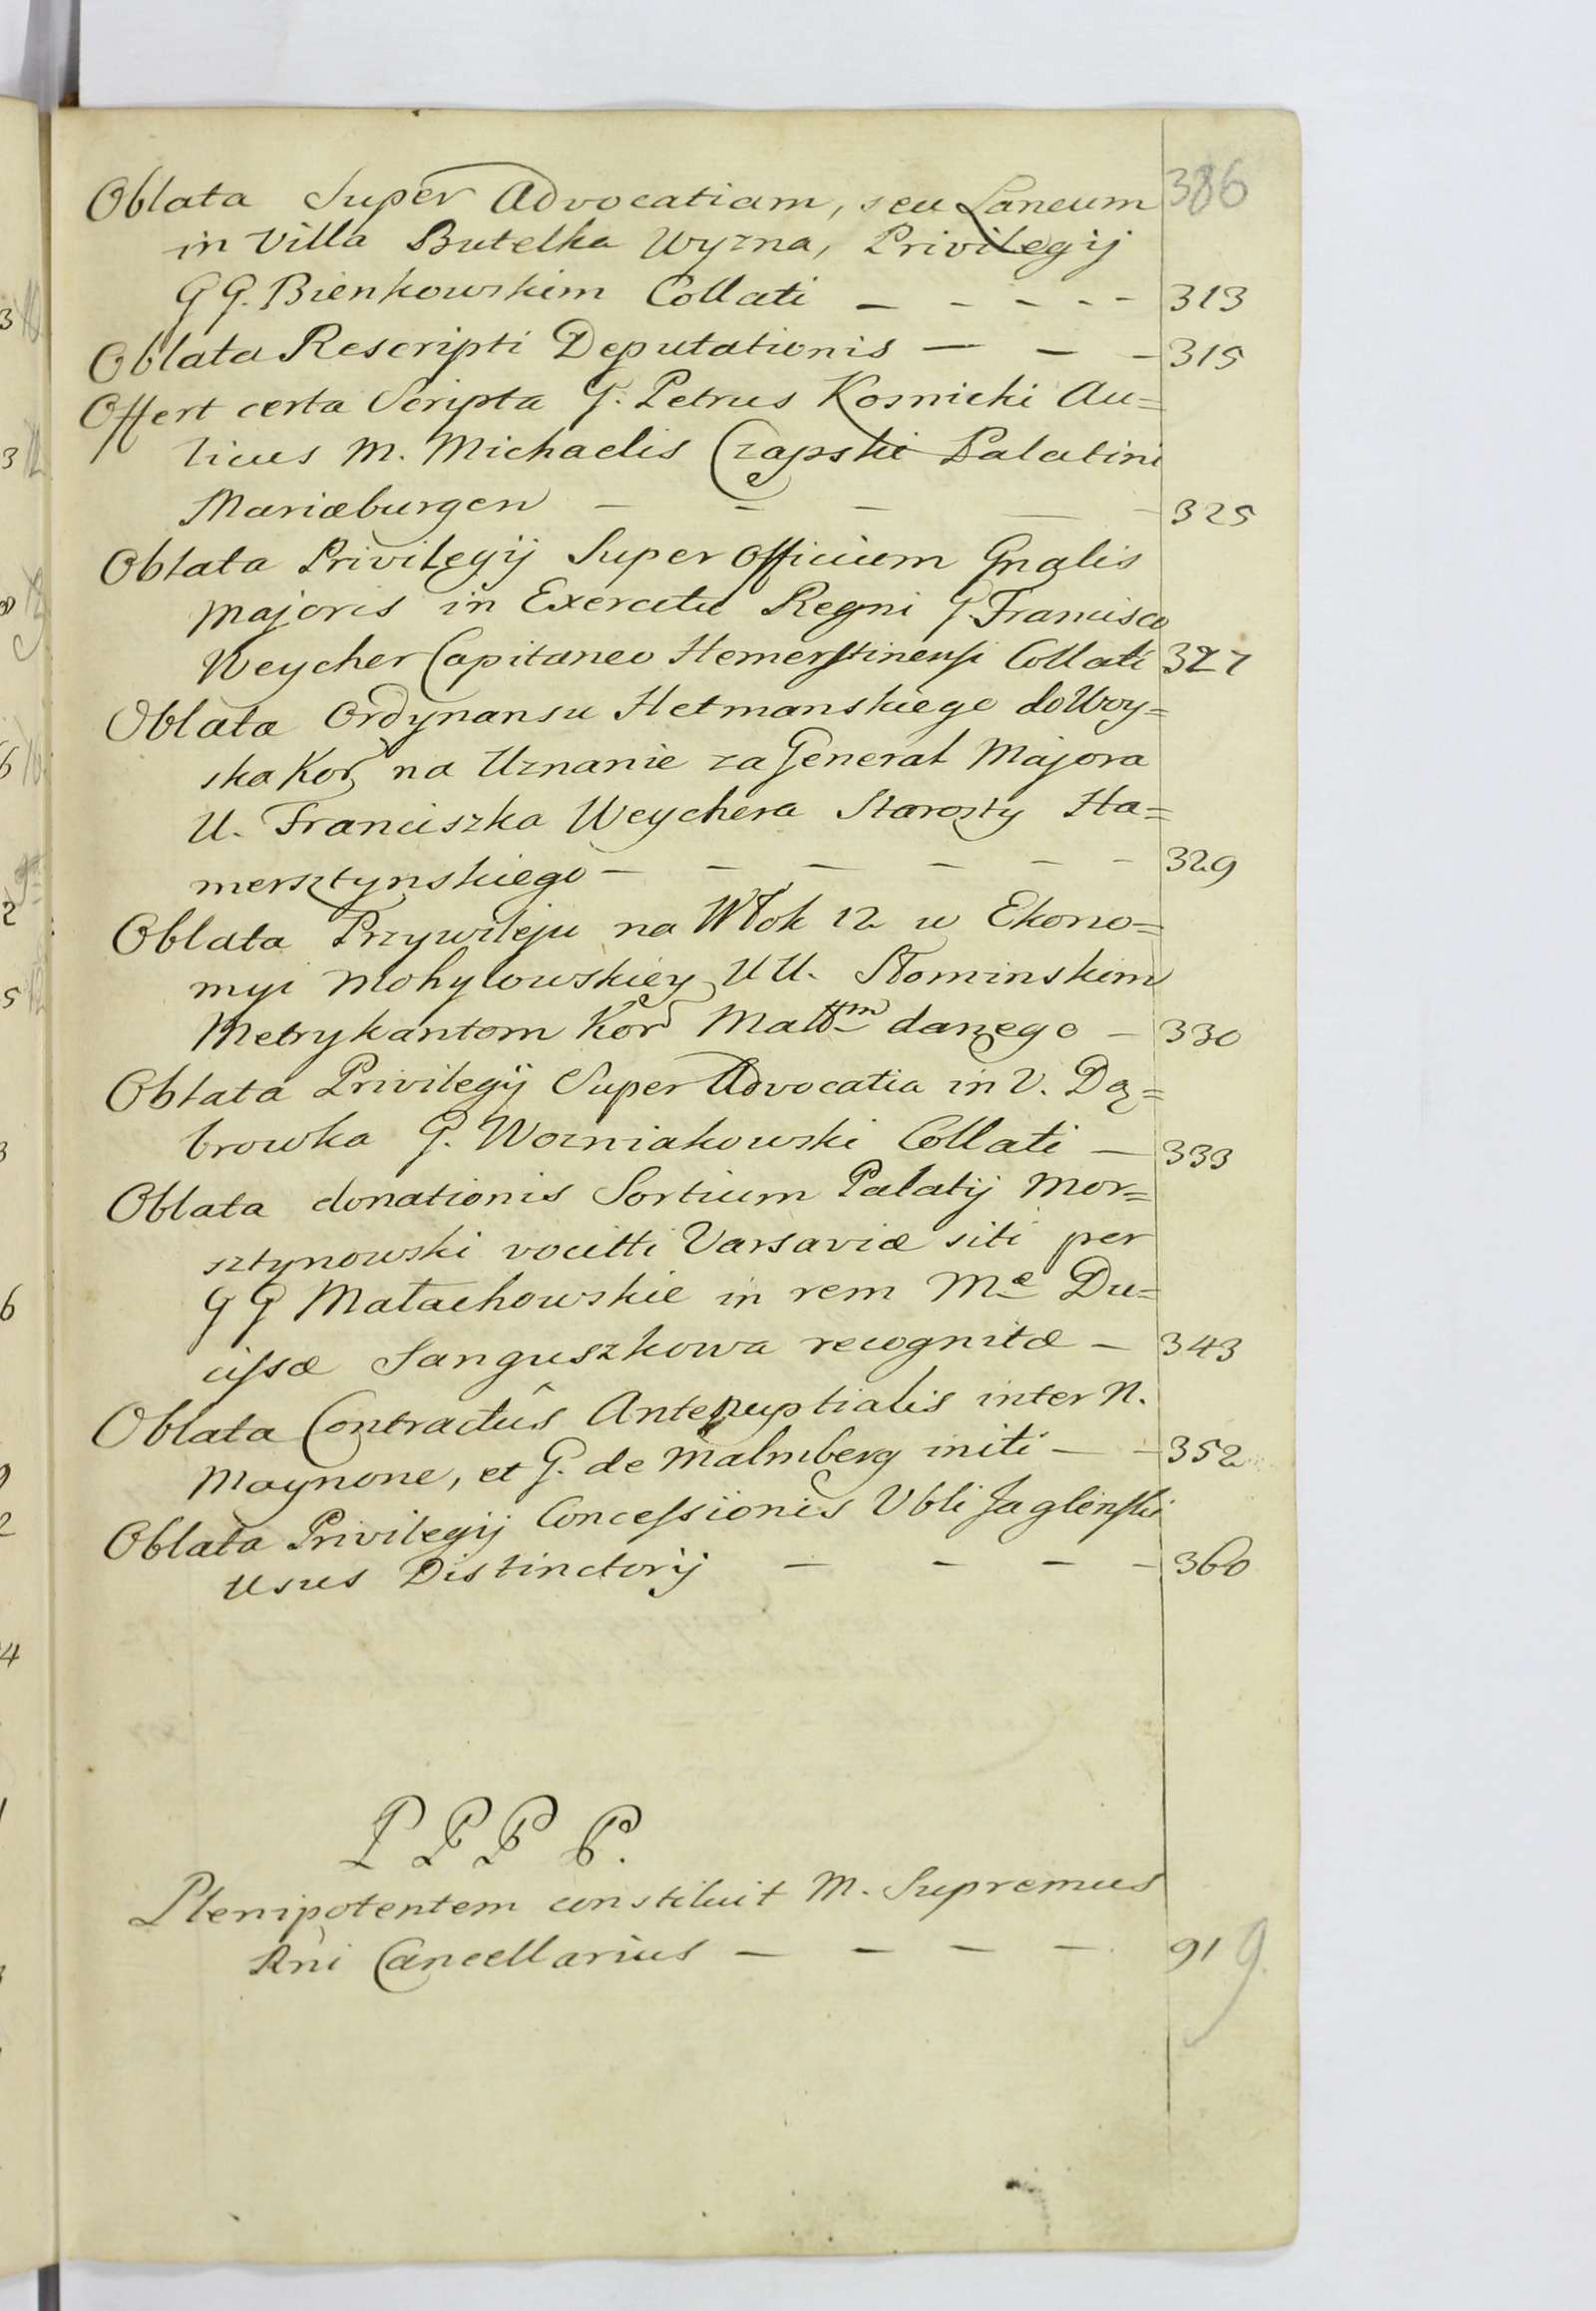 386
Oblata Super Advocatiam, seu Laneum
in Villa Butelka Wyzna, Privilegij
GG. Bienkowskim Collati – – – – – 313
Oblata Rescripti Deputationis – – – 315
Offert certa Scripta G. Petrus Kosnicki Au=
licus M. Michaelis Czapski Palatini
Mariæburgen – – – – – 325
Oblata Privilegij Super Officium Gnalis
Majoris in Exercitu Regni G. Francisco
Weycher Capitaneo Hemerstinensi Collati 327
Oblata Ordynansu Hetmanskiego do Woy=
ska Kor na Uznanie za General Majora
U. Franciszka Weychera Starosty Ha=
mersztynskiego – – – – – – 329
Oblata Przywileju na Włok 12 w Ekono=
myi Mohylowskiey UU. Słominskim
Metrykantom Kor danego – 330
Oblata Privilegij Super Advocatia in V. Dą=
browka G. Wozniakowski Collati – 333
Oblata donationis Sortium Palatij Mor=
sztynowski vocitti Varsaviæ siti per
GG Małachowskie in rem Me Du=
cissæ Sanguszkowa recognitæ – 343
Oblata Contractûs Antenuptialis inter N.
Maynone, et G. de Malmberg initi – – 352
Oblata Privilegij Concessionis Vbli Jaglinski
Usus Distinctorij – – – – 360
P P P P.
Plenipotentem constituit M. Supremus
Rni Cancellarius – – – – 91 9.